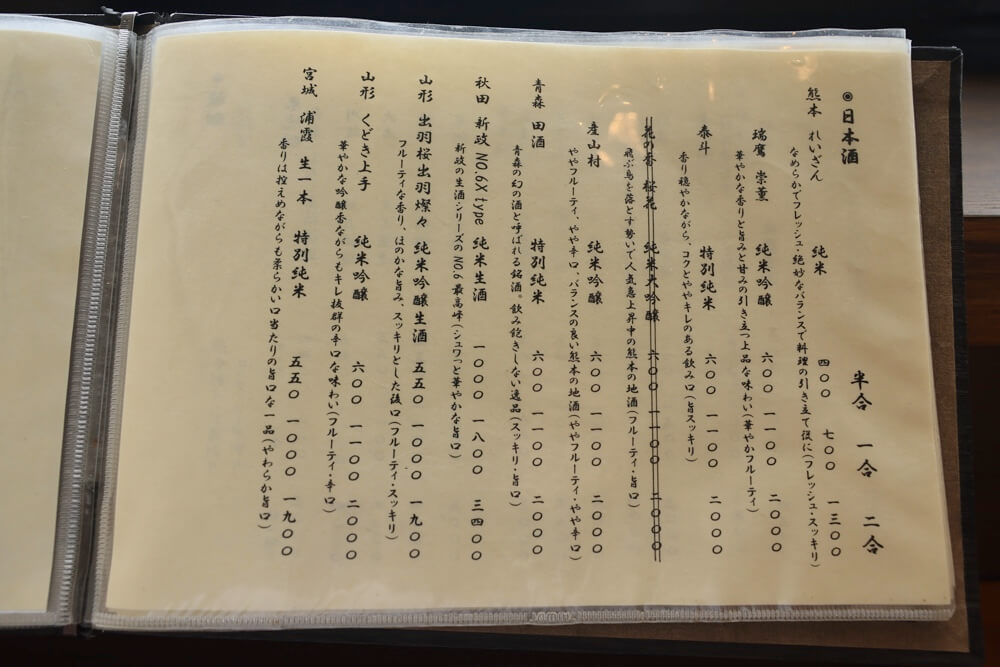 ◉日本酒
半合 一合 二合
熊本 れいざん 純米 四〇〇 七〇〇 一三〇〇
なめらかでフレッシュ・絶妙なバランスで料理の引き立て役に(フレッシュ・スッキリ)
瑞鷹 崇薫 純米吟醸 六〇〇 一一〇〇 二〇〇〇
華やかな香りと旨みと甘みの引き立つ上品な味わい(華やかフルーティ)
泰斗 特別純米 六〇〇 一一〇〇 二〇〇〇
香り穏やかながら、コクとややキレのある飲み口(旨スッキリ)
花の香 桜花 純米大吟醸 六〇〇 一一〇〇 二〇〇〇
飛ぶ鳥を落とす勢いで人気急上昇中の熊本の地酒(フルーティ・旨口)
産山村 純米吟醸 六〇〇 一一〇〇 二〇〇〇
ややフルーティ、やや辛口、バランスの良い熊本の地酒(ややフルーティ・やや辛口)
青森 田酒 特別純米 六〇〇 一一〇〇 二〇〇〇
青森の幻の酒と呼ばれる銘酒。飲み飽きしない逸品(スッキリ・旨口)
秋田 新政 NO.6X type 純米生酒 一〇〇〇 一八〇〇 三四〇〇
新政の生酒シリーズのNO.6最高峰(シュワっと華やかな旨口)
山形 出羽桜出羽燦々 純米吟醸生酒 五五〇 一〇〇〇 一九〇〇
フルーティな香り、ほのかな旨み、スッキリとした後口(フルーティ・スッキリ)
山形 くどき上手 純米吟醸 六〇〇 一一〇〇 二〇〇〇
華やかな吟醸香ながらもキレ抜群の辛口な味わい(フルーティ・辛口)
宮城 浦霞 生一本 特別純米 五五〇 一〇〇〇 一九〇〇
香りは控えめながらも柔らかい口当たりの旨口な一品(やわらか旨口)